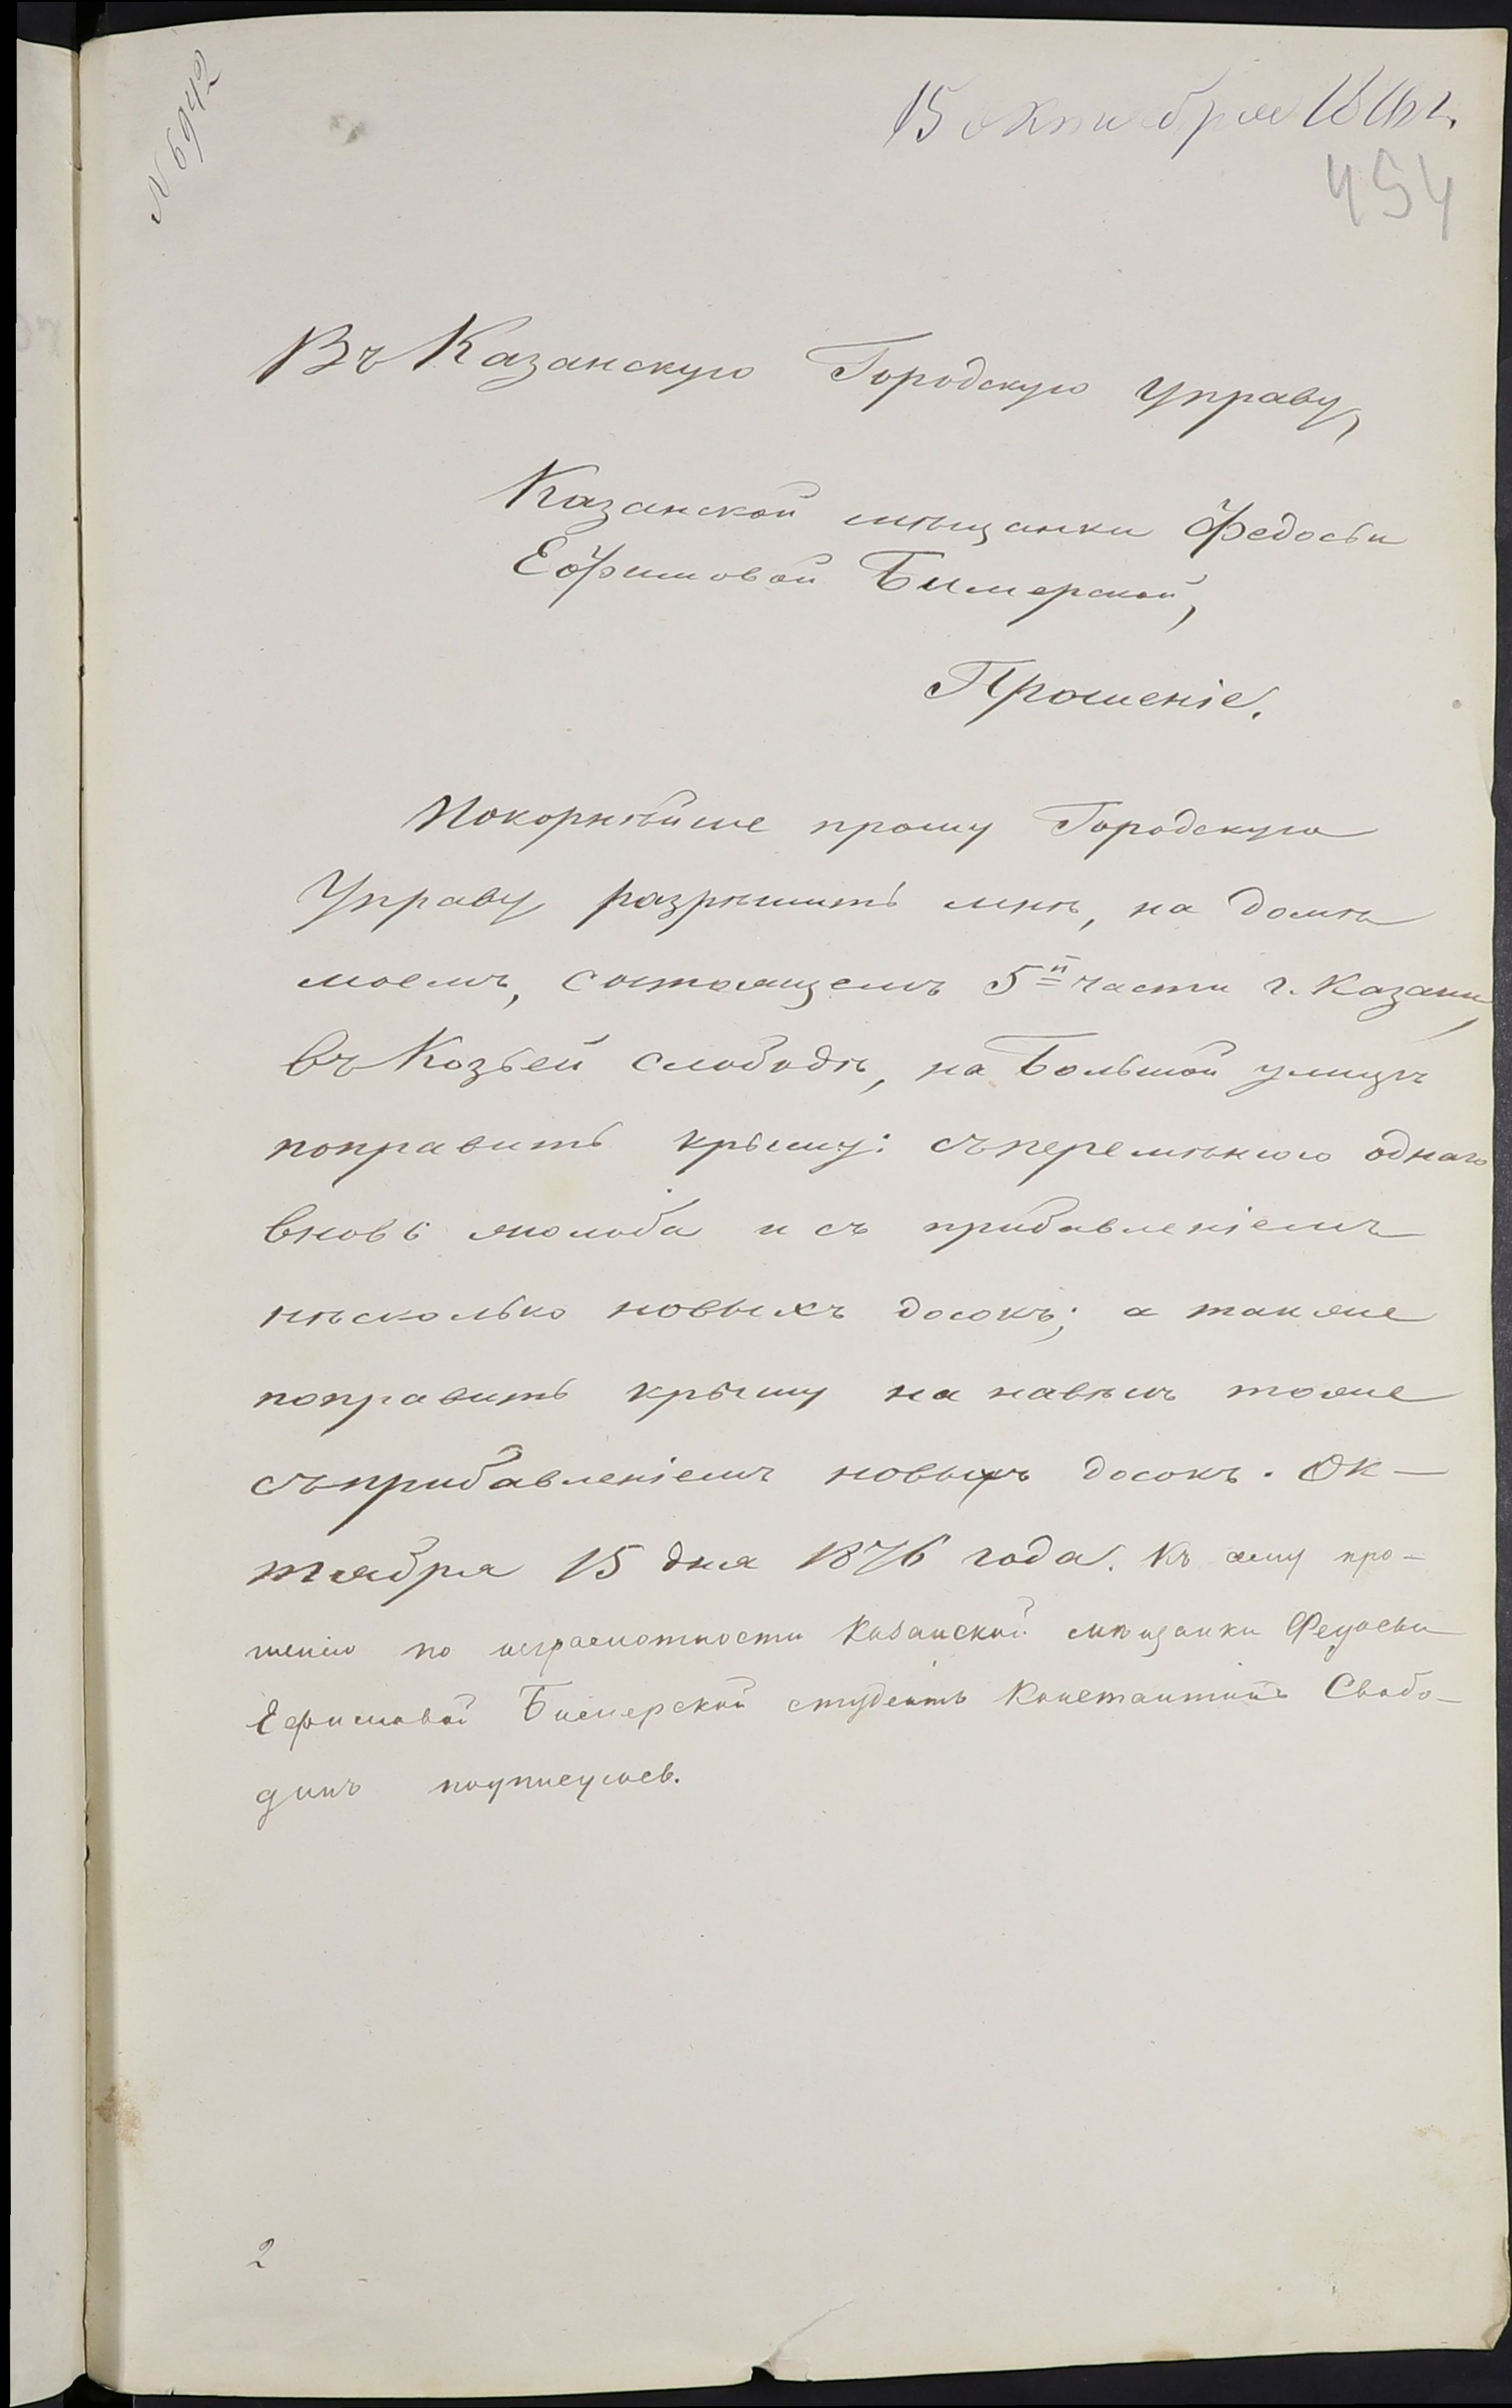 N 6942
15 октября 1876 г.
454
Въ Казанскую Городскую Управу,
Казанской мѣщанки Федосьи
Ефимовой Бимерской,
Прошеніе.
Покорнѣйше прошу Городскую
Управу разрѣшить мнѣ, на домѣ
моемъ, состоящемъ 5й части г. Казани,
въ Козьей слободѣ, на Большой улицѣ
поправить крышу: съ перемѣною однаго
вновь жолоба и съ прибавленіемъ
нѣсколько новыхъ досокъ; а также
поправить крышу на навѣсѣ тоже
съ прибавленіемъ новыхъ досокъ. Ок-
тября 15 дня 1876 года. Къ сему про-
шенію по неграмотности Казанской мѣщанки Федосьи
Ефимовой Бимерской студентъ Константинъ Свобо-
динъ подписуюсь.
2